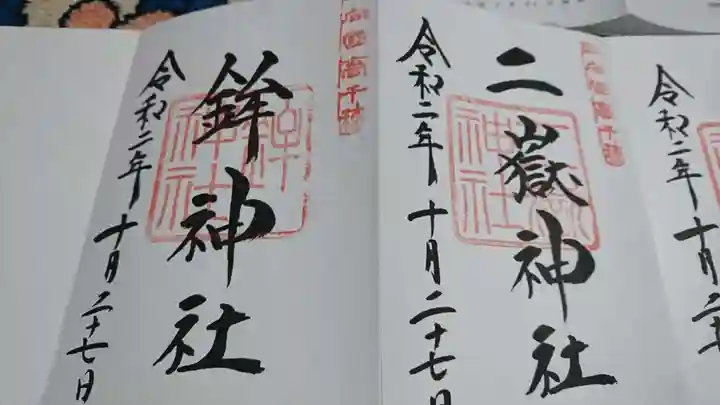 二嶽神社
令和二年十月二十七日
鉾神社
令和二年十月二十七日
令和二年十月二十